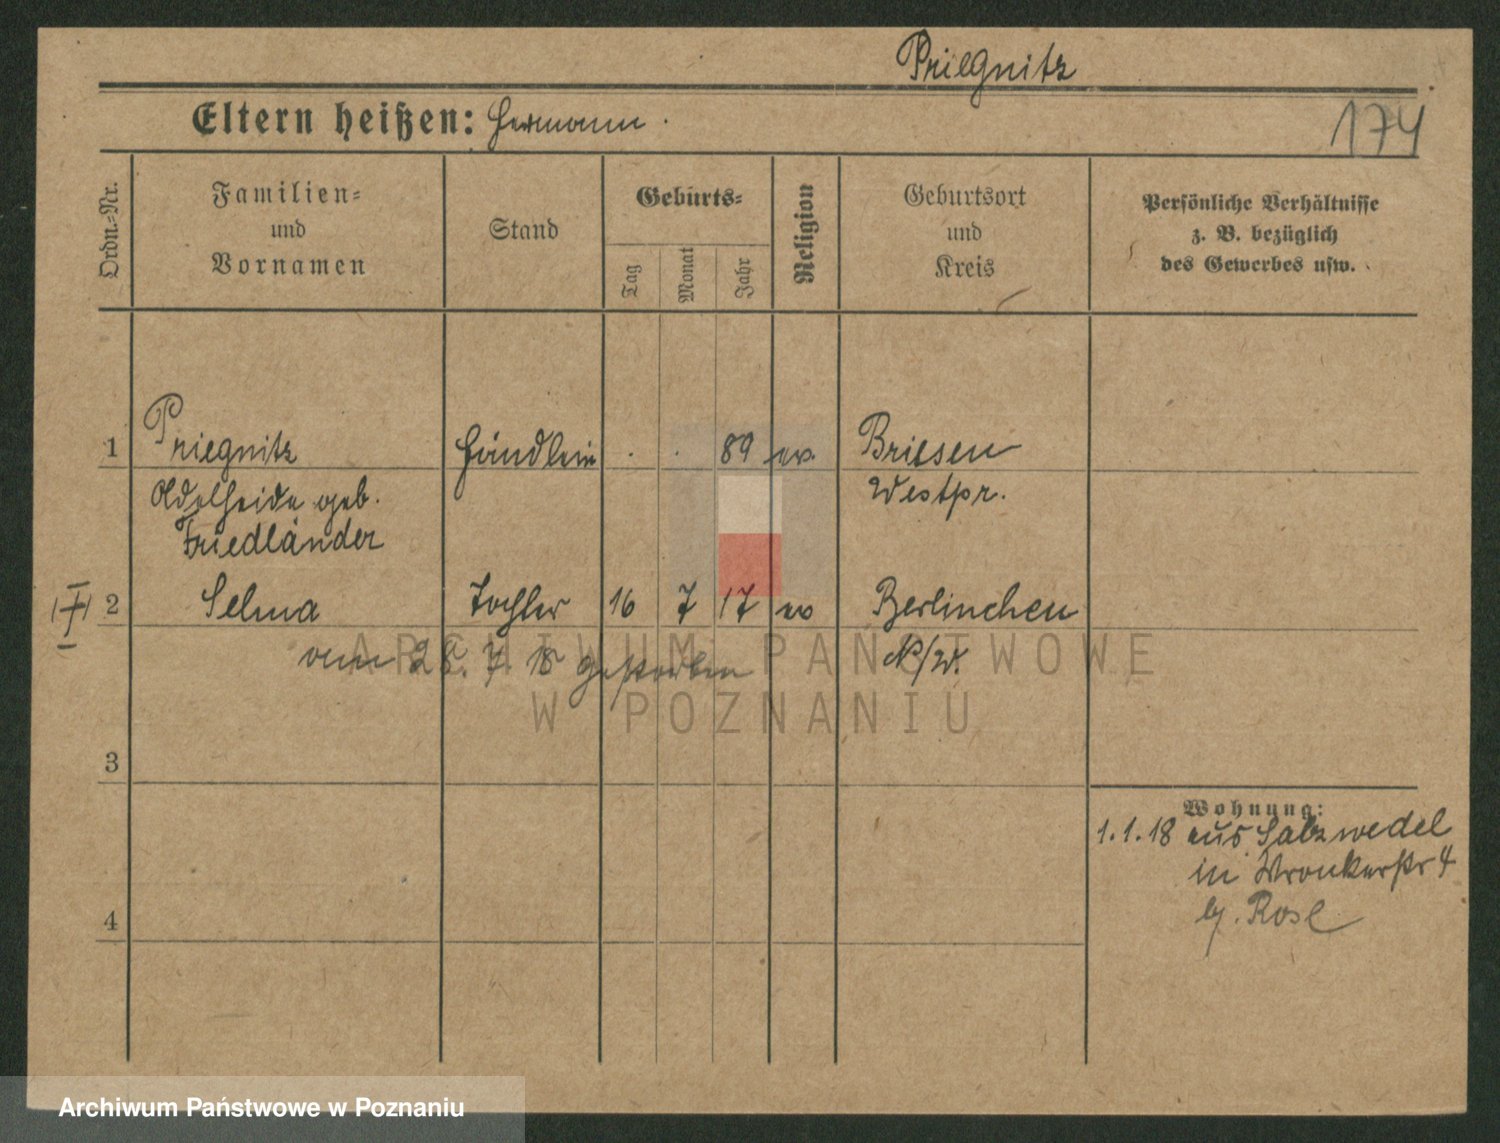 Priegnitz
Eltern heißen: Hermann.
174
Ordn.=Nr.
Familien=
und
Vornamen
Stand
Geburts=
Tag
Monat
Jahr
Religion
Geburtsort
und
Kreis
Persönliche Verhältnisse
z. B. bezüglich
des Gewerbes usw.
1 Priegnitz 89 ev. Briesen
Adelheide geb. Westpr.
Friedländer
2 Selma Tochter 16 7 17 ev Berlinchen
28. 7. 18 gestorben N/W.
3
Wohnung:
1.1.18 aus Salzwedel
in Wronkerstr 4
b/. Rose
4
ARCHIWUM PAŃSTWOWE
W POZNANIU
Archiwum Państwowe w Poznaniu